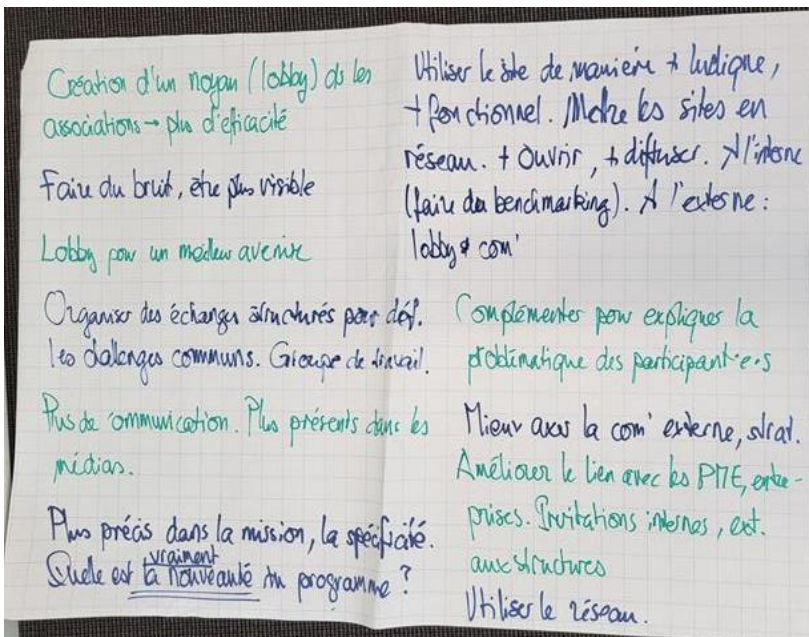 Création d'un noyau (lobby) ds les
associations → plus d'eficacité
Faire du bruit, être plus visible
Lobby pour un meilleur avenir
Organiser des échanges structurés pour déf.
les challenges communs. Groupe de travail.
Plus de communication. Plus présents dans les
médias.
Plus précis dans la mission, la spécificité.
Quelle est vraiment la nouveauté du programme ?
Utiliser le site de manière + ludique,
+ fonctionnel. Mettre les sites en
réseau. + Ouvrir, + diffuser. A l'interne
(faire du benchmarking). A l'externe :
lobby & com'
Complémenter pour expliquer la
problématique des participant·e·s
Mieux axer la com' externe, strat.
Améliorer le lien avec les PME, entre-
prises. Invitations internes, ext.
aux structures
Utiliser le réseau.